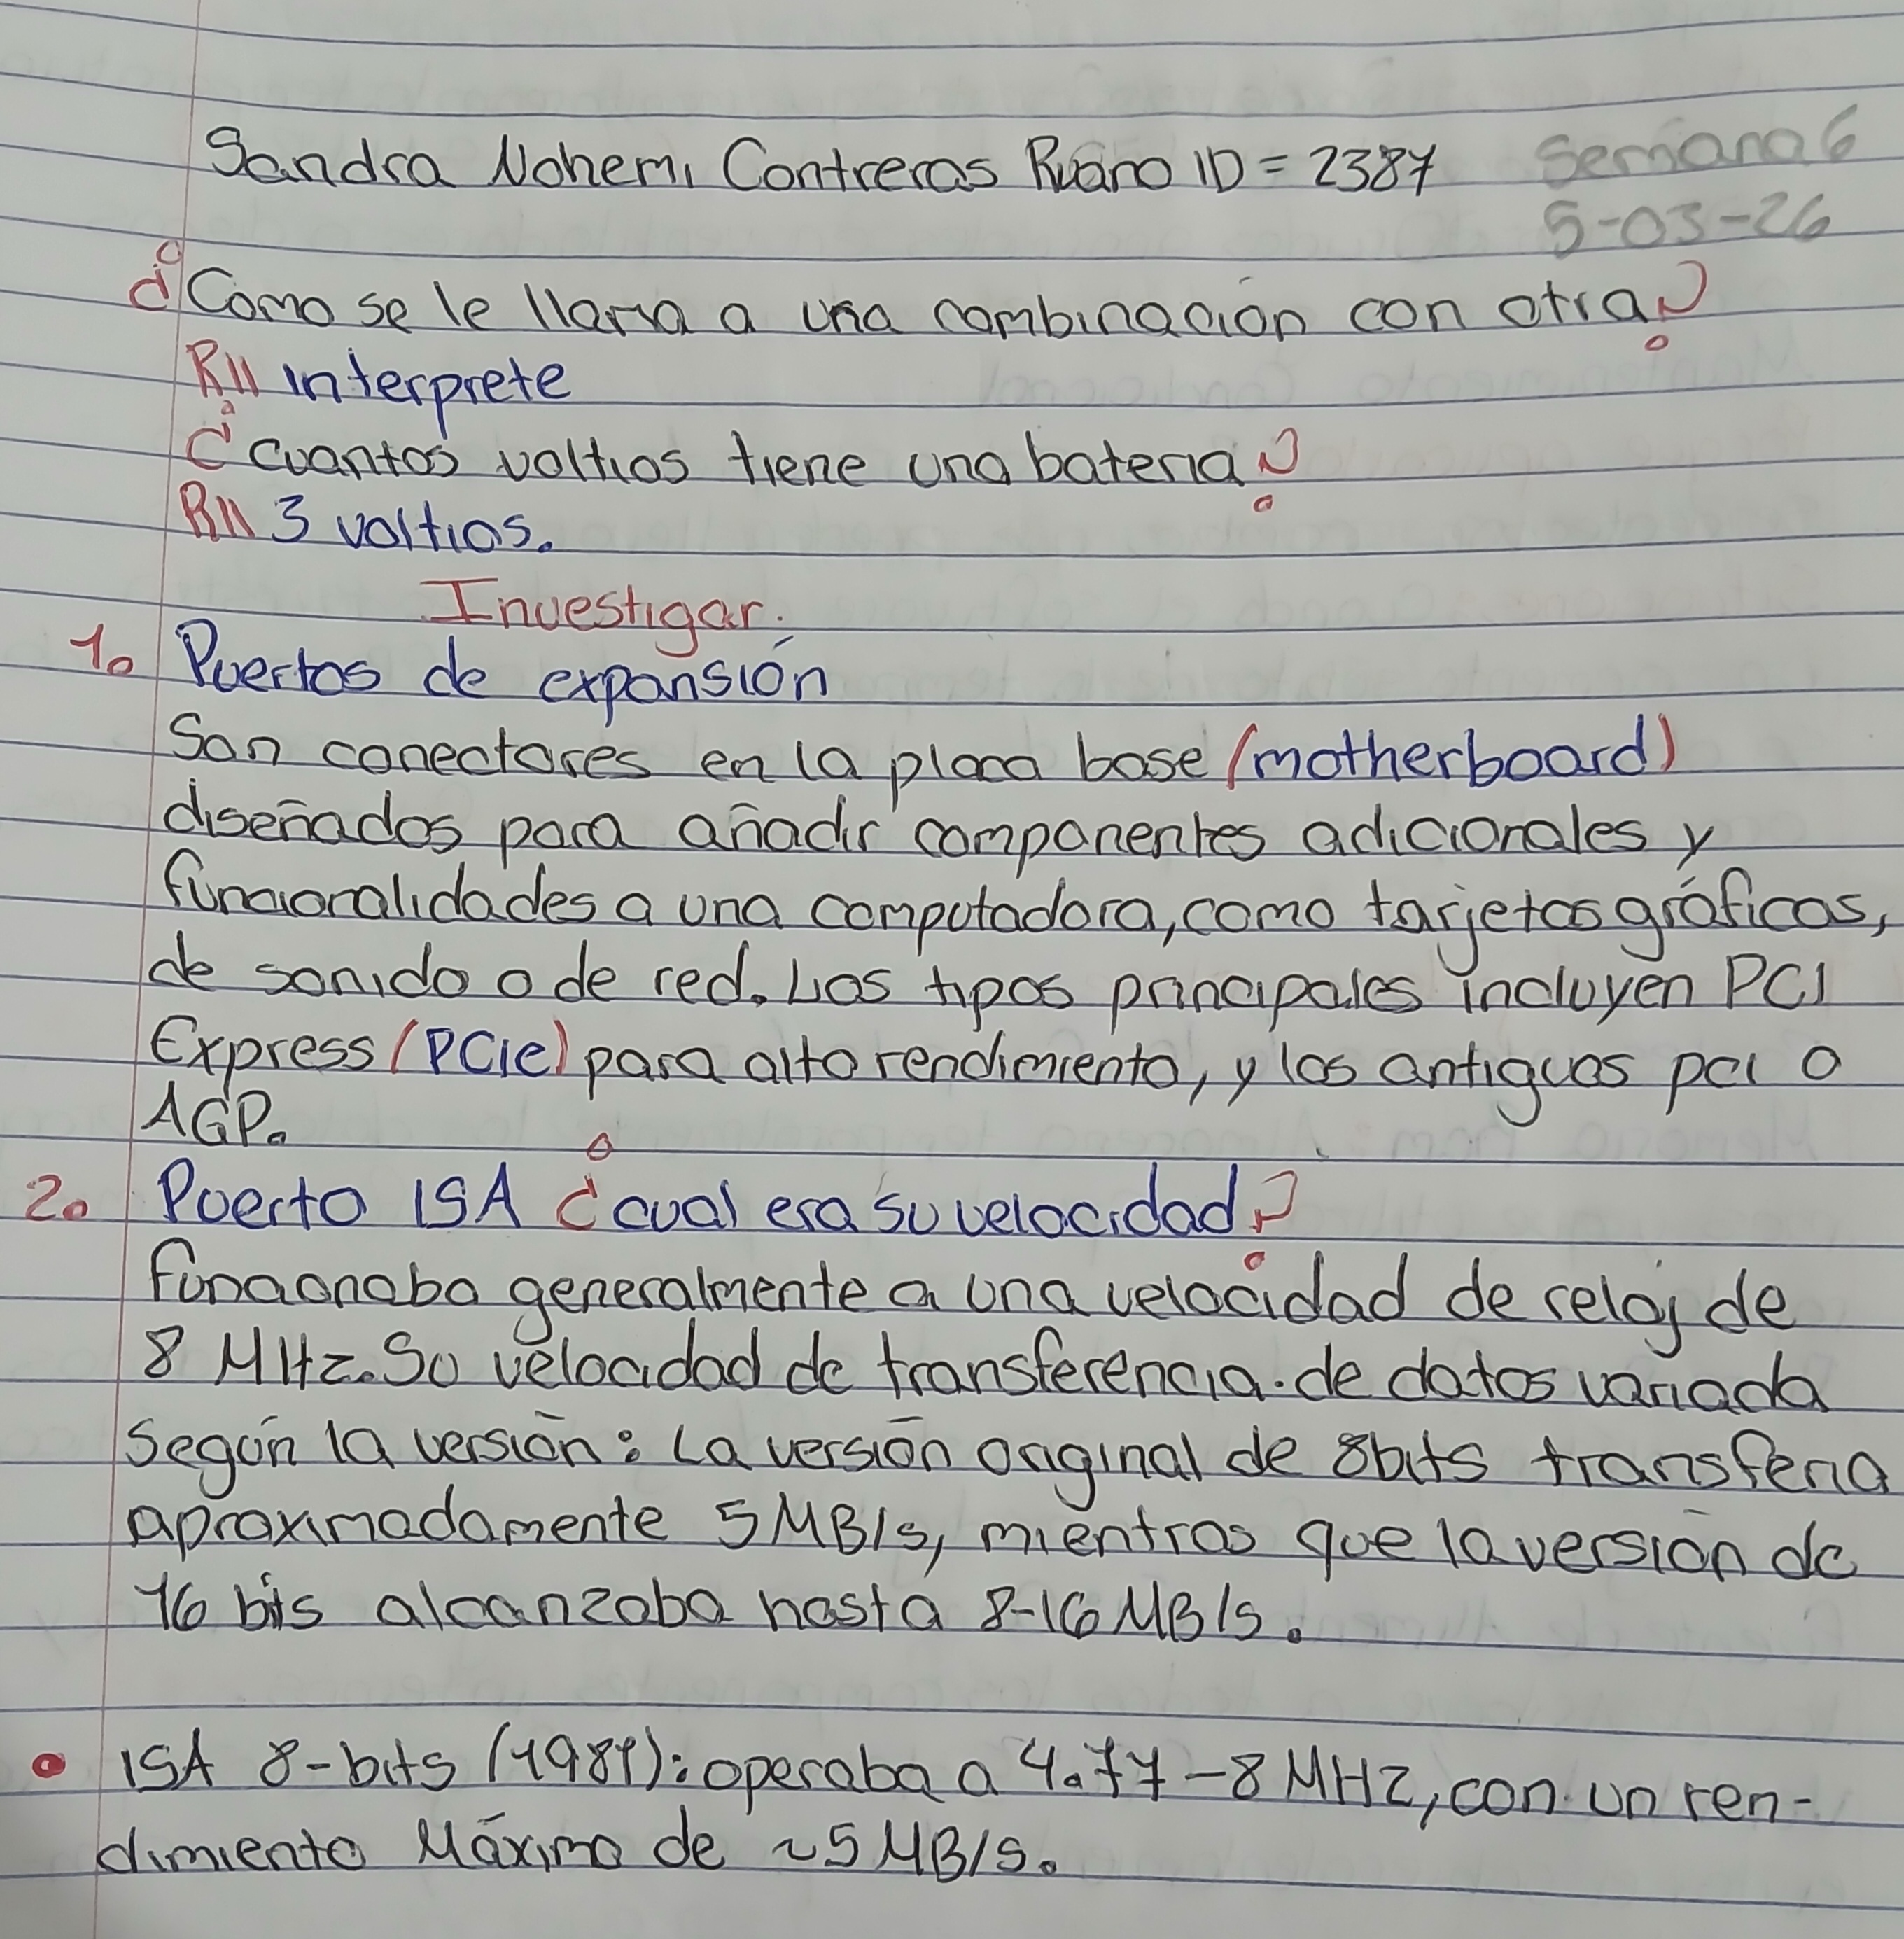 Sandra Nohemi Contreras Ruano ID = 2387 Semana 6
5-03-26
¿Como se le llama a una combinación con otra?
R// interprete
¿cuantos voltios tiene una bateria?
R// 3 voltios.
Investigar.
1. Puertos de expansión
Son conectores en la placa base (motherboard)
diseñados para añadir componentes adicionales y
funcionalidades a una computadora, como tarjetas gráficas,
de sonido o de red. Los tipos principales incluyen PCI
Express (PCIe) para alto rendimiento, y los antiguos pci o
AGP.
2. Puerto ISA ¿cual era su velocidad?
funcionaba generalmente a una velocidad de reloj de
8 MHz. Su velocidad de transferencia de datos variada
según la versión: La versión original de 8bits transferia
aproximadamente 5 MB/s, mientras que la versión de
16 bis alcanzaba hasta 8-16 MB/s.
• ISA 8-bits (1981): operaba a 4.77 - 8 MHZ, con un ren-
dimiento Máximo de ~5 MB/s.